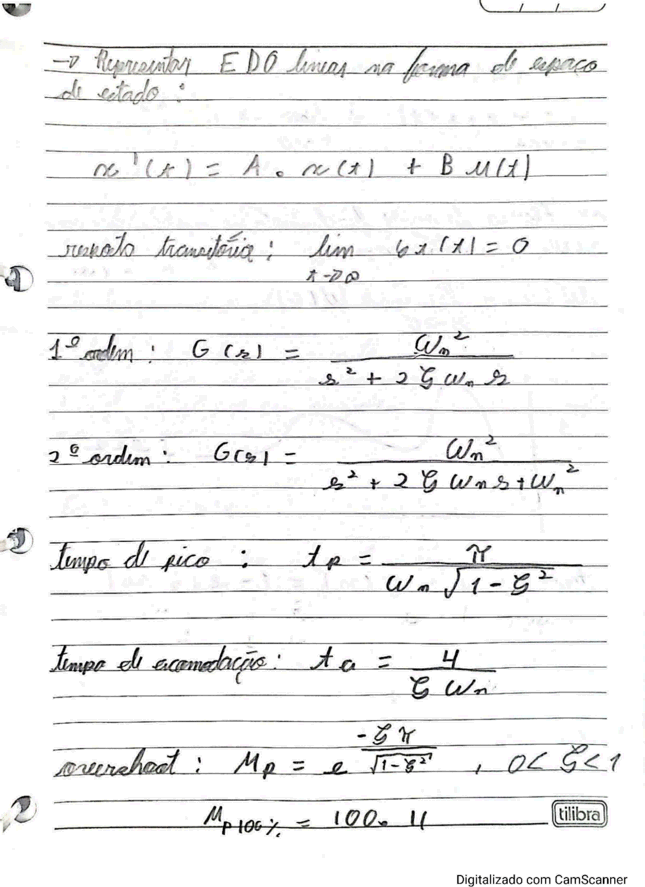 → Representar EDO linear na forma de espaço
de estado:
x'(t) = A . x(t) + B u(t)
resposta transitória: lim 6x(t) = 0
t→∞
1º ordem: G(s) = ωn² / s² + 2ξωn s
2º ordem: G(s) = ωn² / s² + 2ξωn s + ωn²
tempo de pico: tp = π / ωn √1-ξ²
tempo de acomodação: ta = 4 / ξ ωn
overshoot: Mp = e^(-ξπ / √1-ξ²) , 0 < ξ < 1
Mp100% = 100.
tilibra
Digitalizado com CamScanner